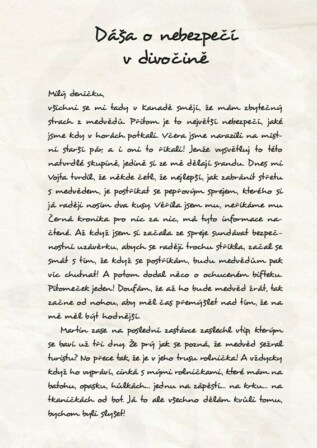 Dáša o nebezpečí
v divočině
Milý deníčku,
všichni se mi tady v Kanadě smějí, že mám zbytečný
strach z medvědů. Přitom je to největší nebezpečí, jaké
jsme kdy v horách potkali. Včera jsme narazili na míst-
ní starší pár, a i oni to říkali! Jenže vysvětluj to této
natvrdlé skupině, jediné si ze mě dělají srandu. Dnes mi
Vojta tvrdil, že někde četl, že nejlepší, jak zabránit střetu
s medvědem, je postříkat se pepřovým sprejem, kterého si
já raději nosím dva kusy. Věřila jsem mu, neříkáme mu
Černá kronika pro nic za nic, má tyto informace na-
čtené. Až když jsem si začala ze spreje sundávat bezpeč-
nostní uzávěrku, abych se raději trochu stříkla, začal se
smát s tím, že když se postříkám, budu medvědům pak
víc chutnat! A potom dodal něco o ochuceném bifteku.
Pitomeček jeden! Doufám, že až ho bude medvěd žrát, tak
začne od nohou, aby měl čas přemýšlet nad tím, že na
mě měl být hodnější.
Martin zase na poslední zastávce zaslechl vtip, kterým
se baví už tři dny. Že prý jak se pozná, že medvěd sežral
turistu? No přece tak, že je v jeho trusu rolnička! A vždycky
když ho vypráví, cinká s mými rolničkami, které mám na
batohu, opasku, hůlkách... jednu na zápěstí... na krku... na
tkaničkách od bot. Já to ale všechno dělám kvůli tomu,
bychom byli slyšet!